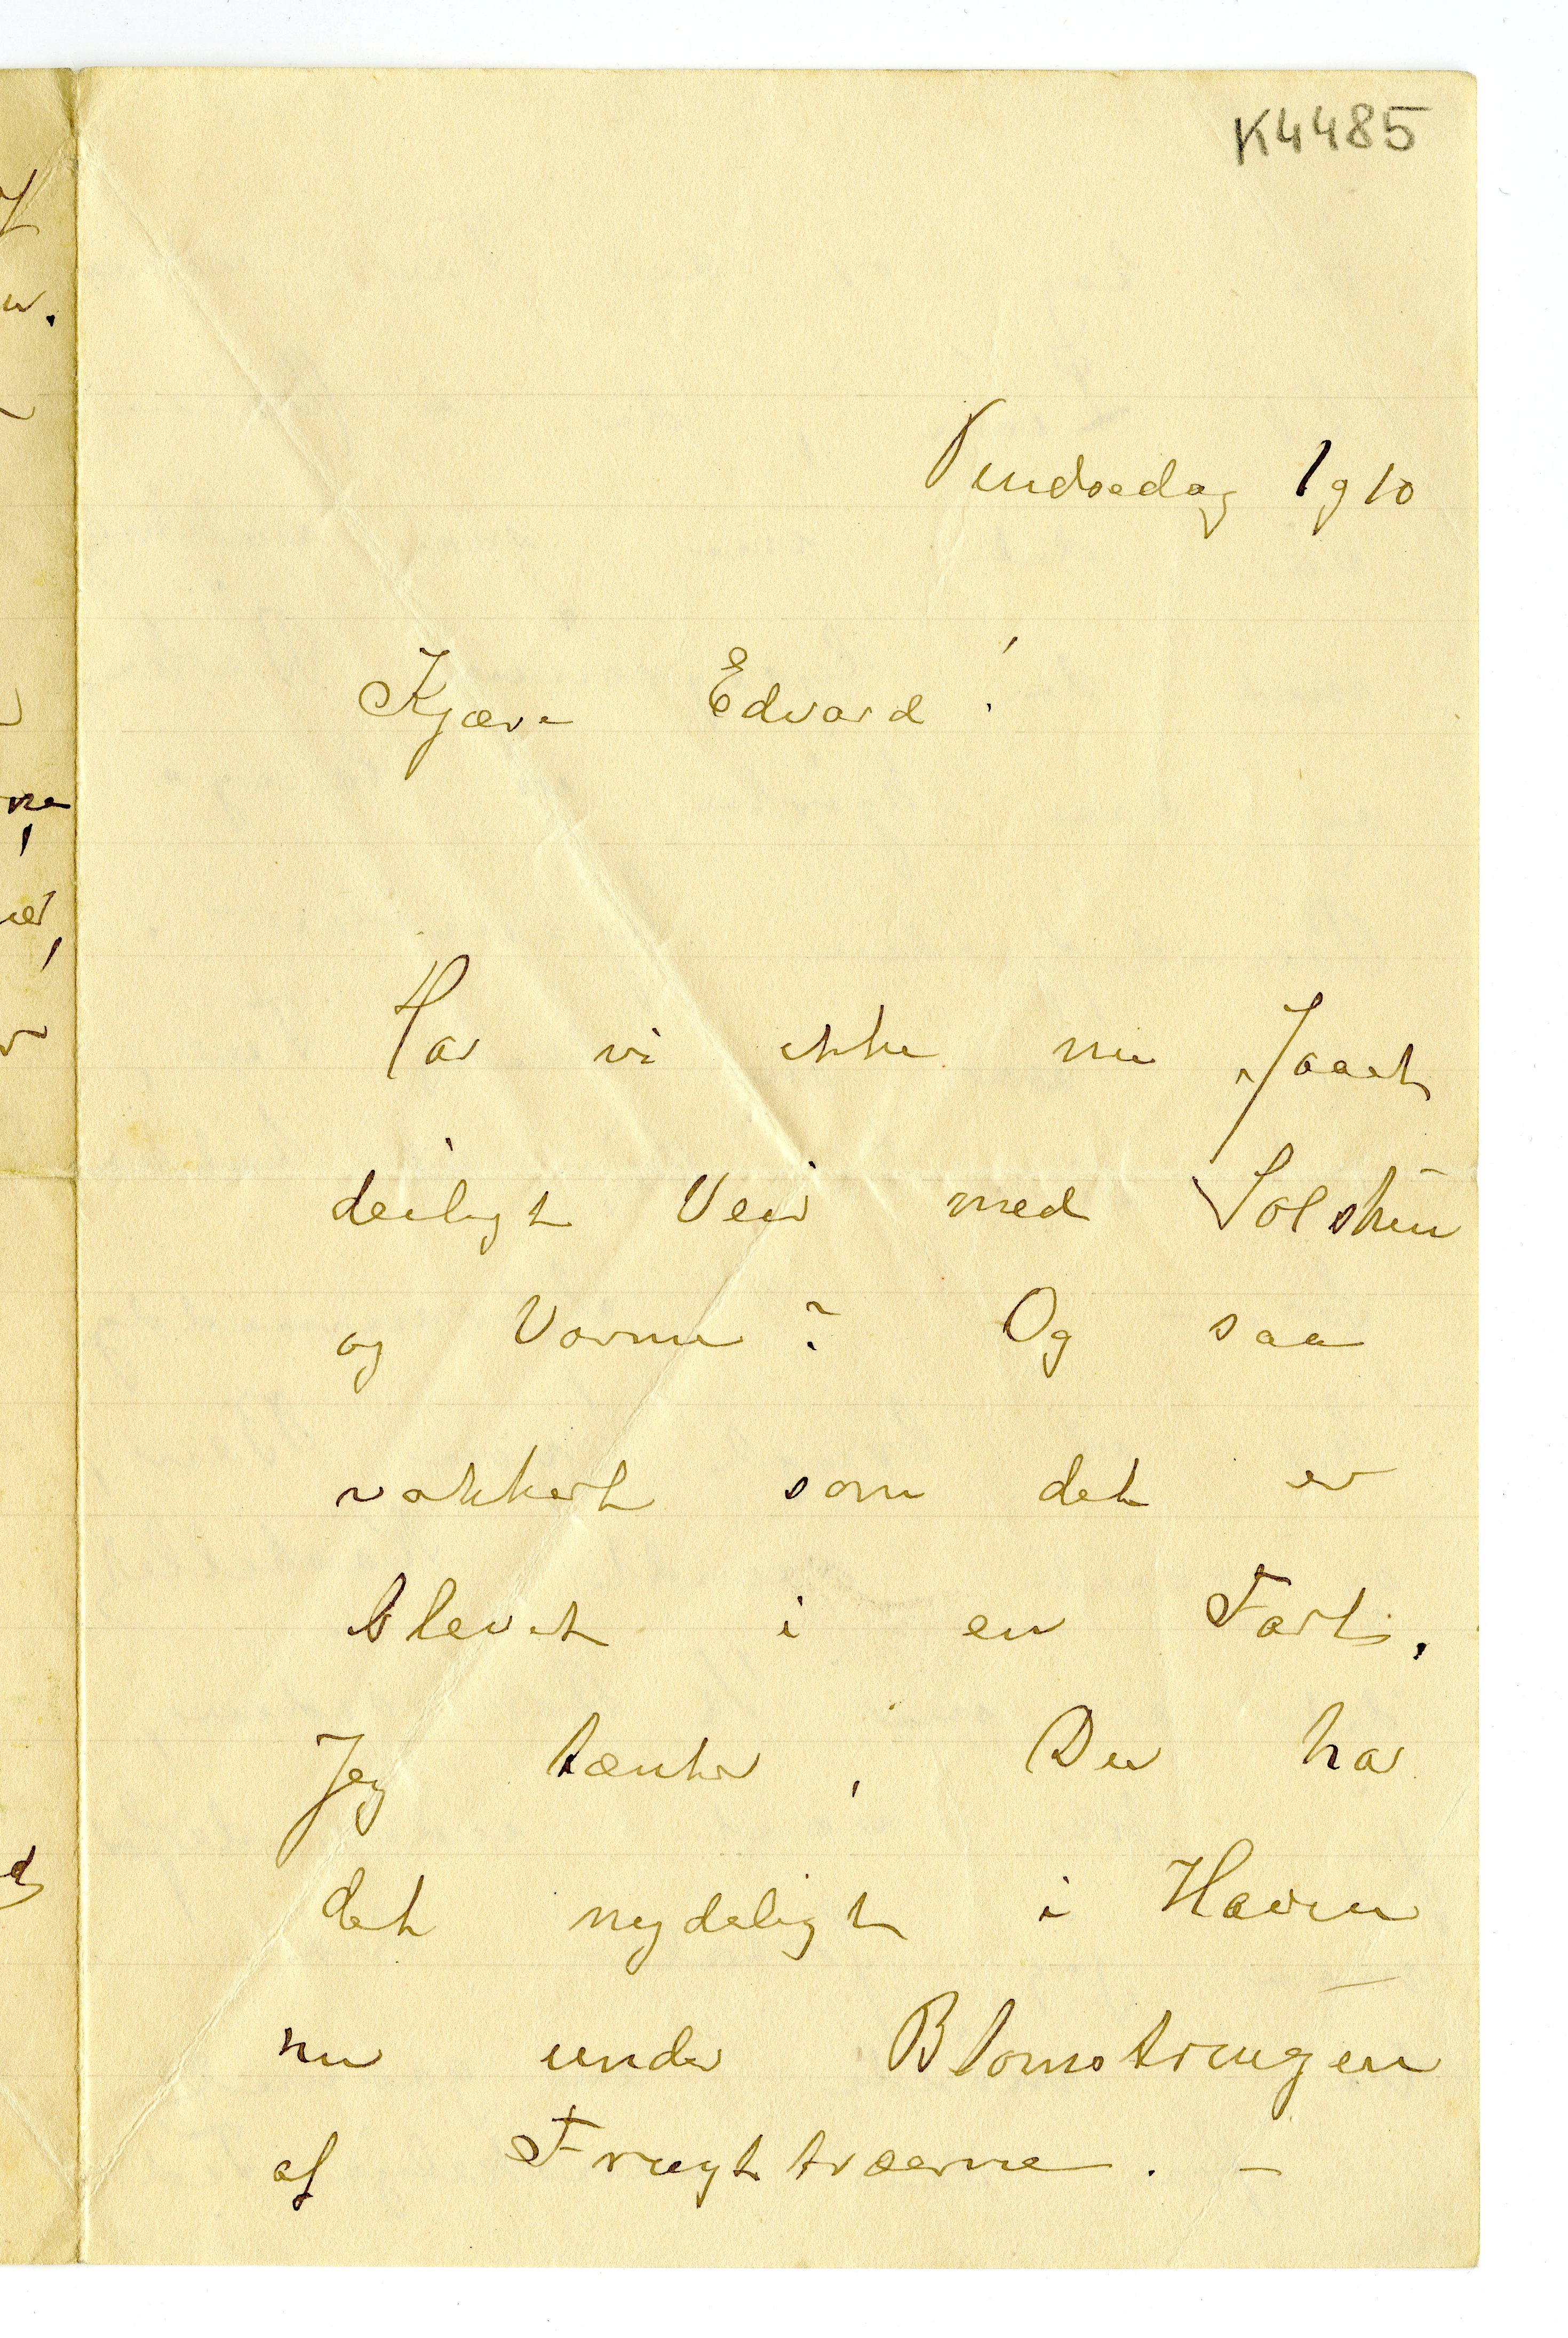 K4485
Pindsedag 1910
Kjære Edvard!
Har vi ikke nu faaet
deiligt Veir med Solskin
og Varme? Og saa
vakkert som det er
blevet i en Fart.
Jeg tænker, Du har
det nydeligt i Haven
nu under Blomstringen
af Frugttræerne. –